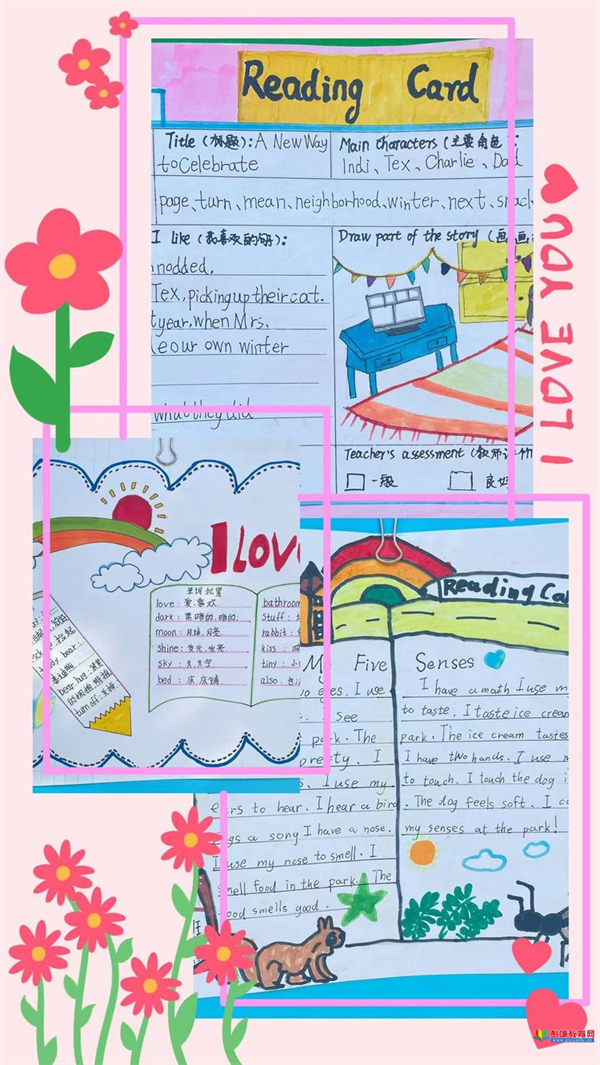 Reading Card
Title (标题): A New Way
to Celebrate
Main characters (主要角色):
Indi、Tex、Charlie、Dad
page、turn、mean、neighborhood、winter、next、snack
I like (我喜欢的句):
Draw part of the story (画
nodded.
Tex, picking up their cat.
year, when Mrs.
e our own winter
what they did
Teacher's assessment (教师
一般
I LOVE YOU
I LOV
单词积累
love: 爱,喜欢
dark: 黑暗的,暗的
moon: 月球,月亮
shine: 发光,
sky: 天,天空
bed: 床,床铺
bathroom
stuff:
rabbit:
kiss
tiny:
also:
bear hug:
turn off: 关掉
Reading Ca
My Five Senses
eyes. I use
see
park. The
pretty. I
. I use my
ears to hear. I hear a bird
a song I have a nose.
I use my nose to smell. I
smell food in the park. The
food smells good.
I have a math I use m
to taste. I taste ice cream
park. The ice cream tastes
I have two hands. I use m
to touch. I touch the dog i
. The dog feels soft. I c
my senses at the park!
教育网